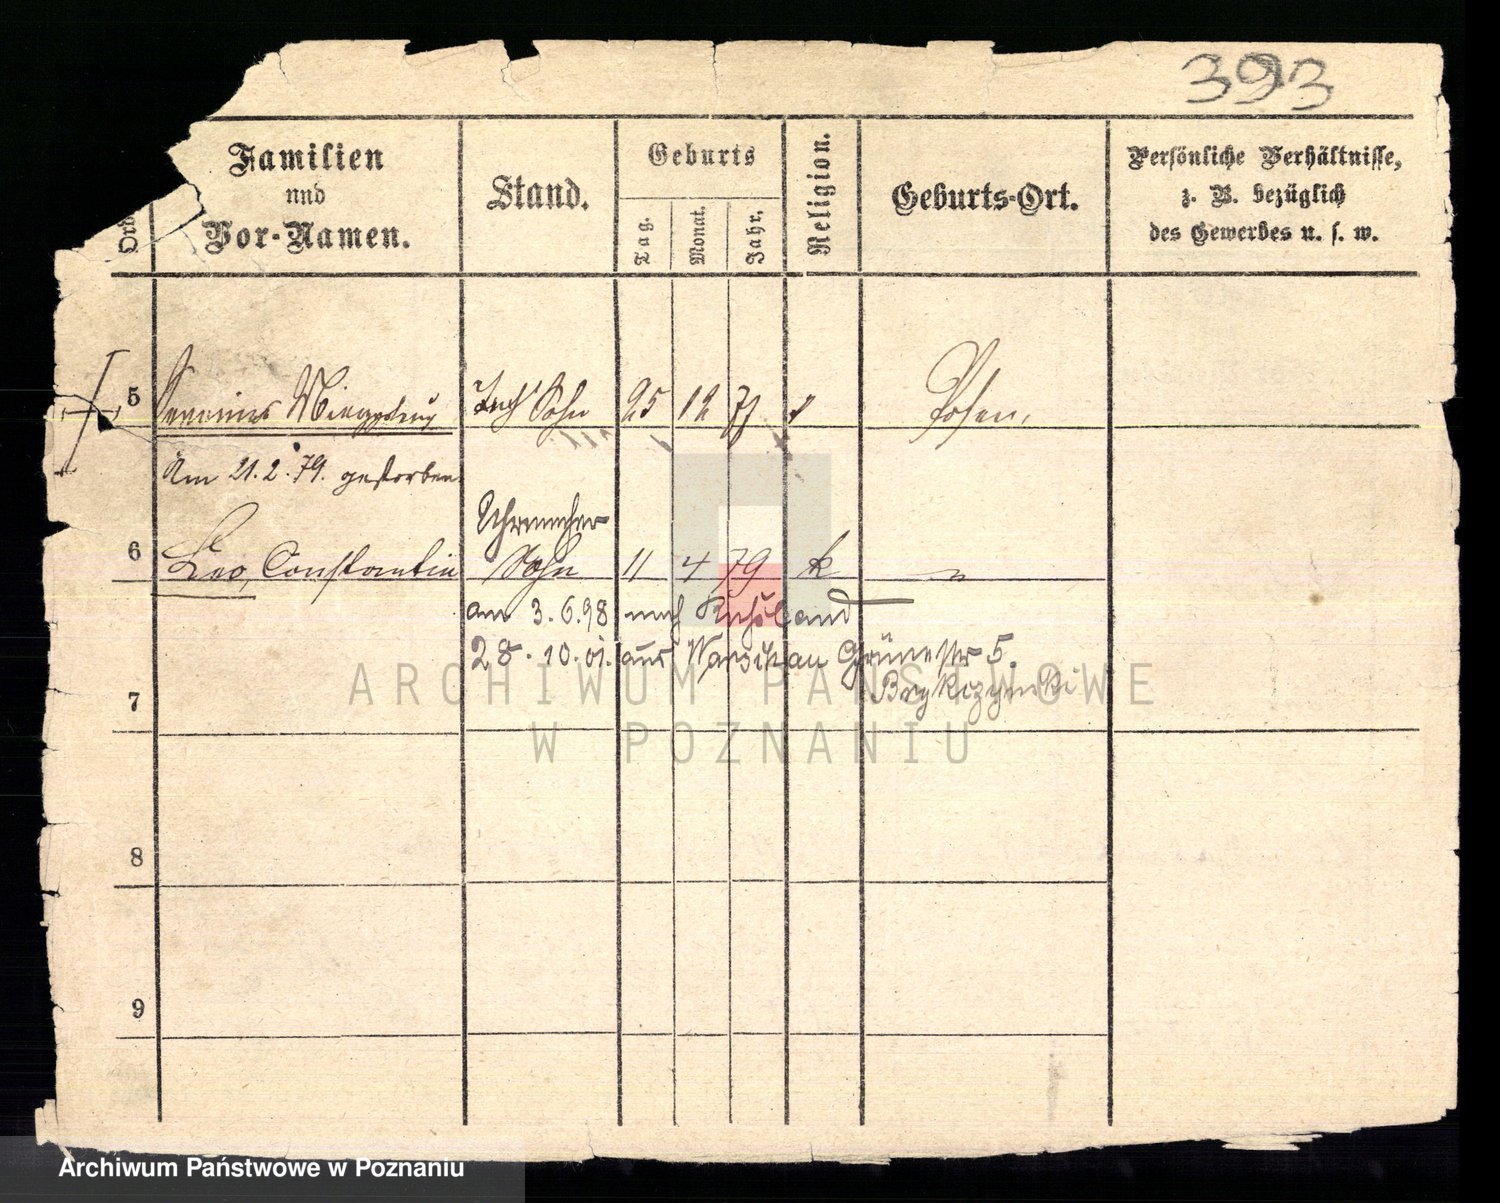 393
Familien
und
Vor-Namen.
Stand.
Geburts
Tag.
Monat.
Jahr.
Religion.
Geburts-Ort.
Persönliche Verhältnisse,
z. B. bezüglich
des Gewerbes u. s. w.
5
Sohn 25 12 77 Posen.
Am 21.2.79. gestorben
6
Leo, Constantin Sohn 11 4 79 k
am 3.6.98 nach Rußland
28.10.01. aus Warschau Grünestr 5.
7
8
9
ARCHIWUM PAŃSTWOWE
W POZNANIU
Archiwum Państwowe w Poznaniu